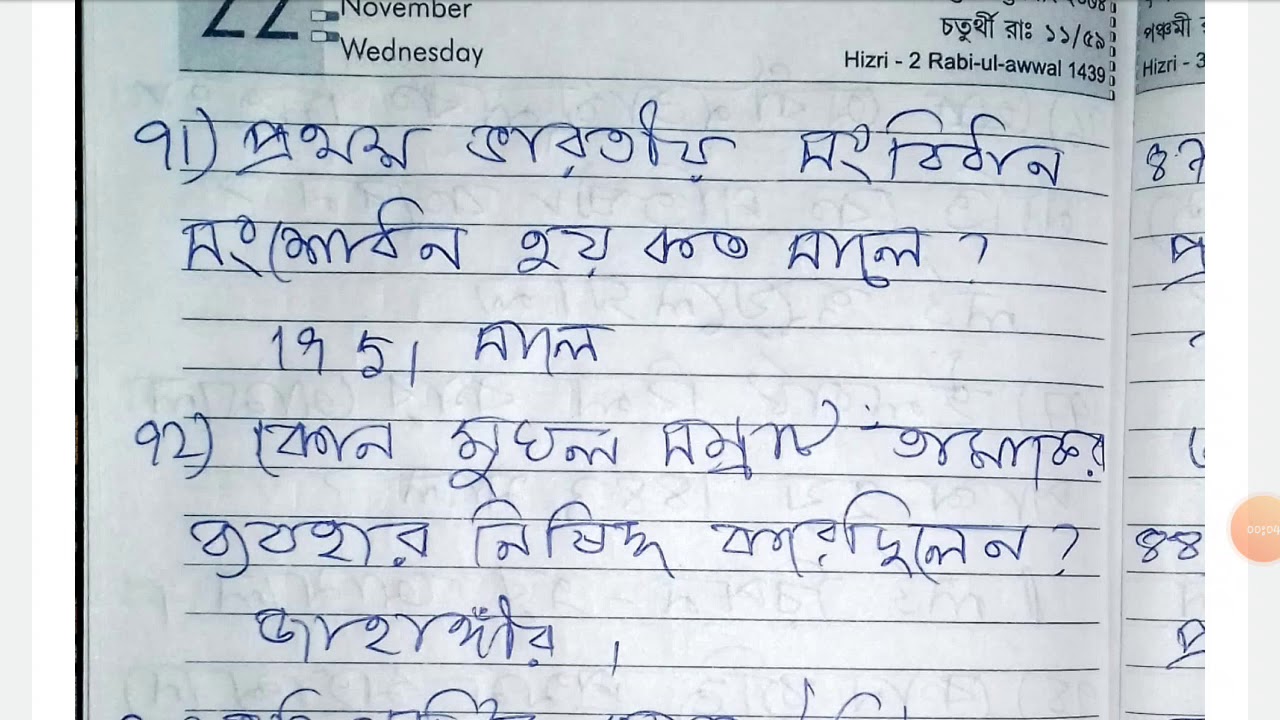 22 November
Wednesday
চতুর্থী রাঃ ১১/৫৯
Hizri - 2 Rabi-ul-awwal 1439
পঞ্চমী
Hizri - 3
৭১) প্রথম ভারতীয় সংবিধান
সংশোধন হয় কত সালে ?
সালে
৭২) কোন মুঘল সম্রাট তামাকের
ব্যবহার নিষিদ্ধ করেছিলেন ?
জাহাঙ্গীর ।
৪৪
প্র
00:04